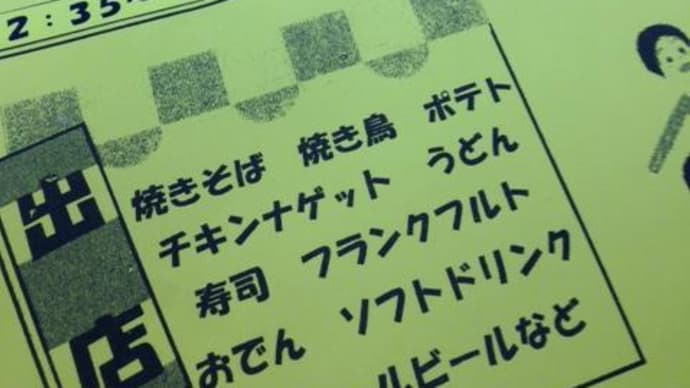 2:35
出店
焼きそば 焼き鳥 ポテト
チキンナゲット うどん
寿司 フランクフルト
おでん ソフトドリンク
ルビールなど